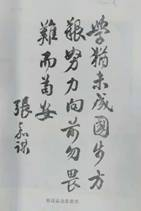 學猶未成國步方
艱努力向前勿畏
難而苟安
張嘉謀